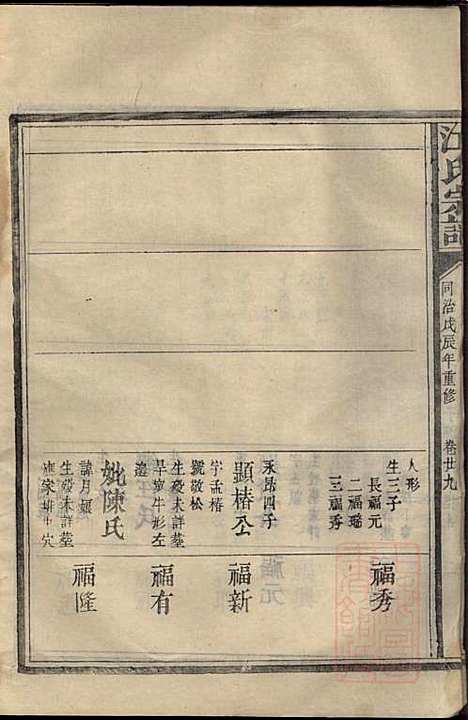 汪氏宗譜
同治戊辰年重修
卷廿九
人形
生三子
長福元
二福瑤
三福秀
永昂四子
顯椿公
字孟椿
號敬松
生歿未詳塟
旱塘牛形左
邊
妣陳氏
諱月娥
生歿未詳塟
福秀
福新
福有
福隆